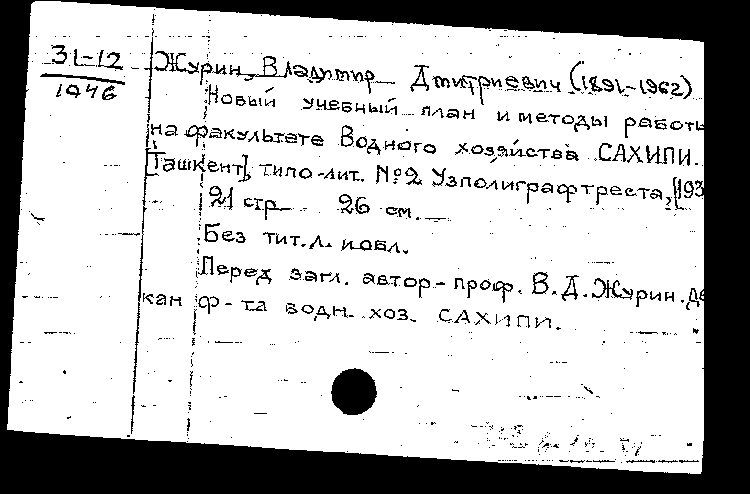 31-12
1946
Журин, Владимир Дмитриевич (1891-1962)
Новый учебный план и методы работы
на факультете Водного хозяйства САХИПИ.
[Ташкент], типо-лит. №2 Узполиграфтреста, [193
21 стр. 26 см.
Без тит. л. и обл.
Перед загл. автор - проф. В. Д. Журин. де
кан ф-та водн. хоз. САХИПИ.